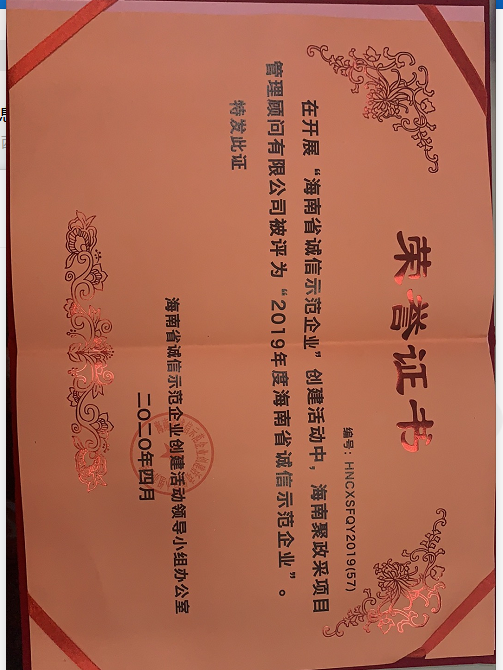 荣誉证书
编号：HNCXSFQY2019(57)
在开展“海南省诚信示范企业”创建活动中，海南聚政采项目
管理顾问有限公司被评为“2019年度海南省诚信示范企业”。
特发此证
海南省诚信示范企业创建活动领导小组办公室
二〇二〇年四月